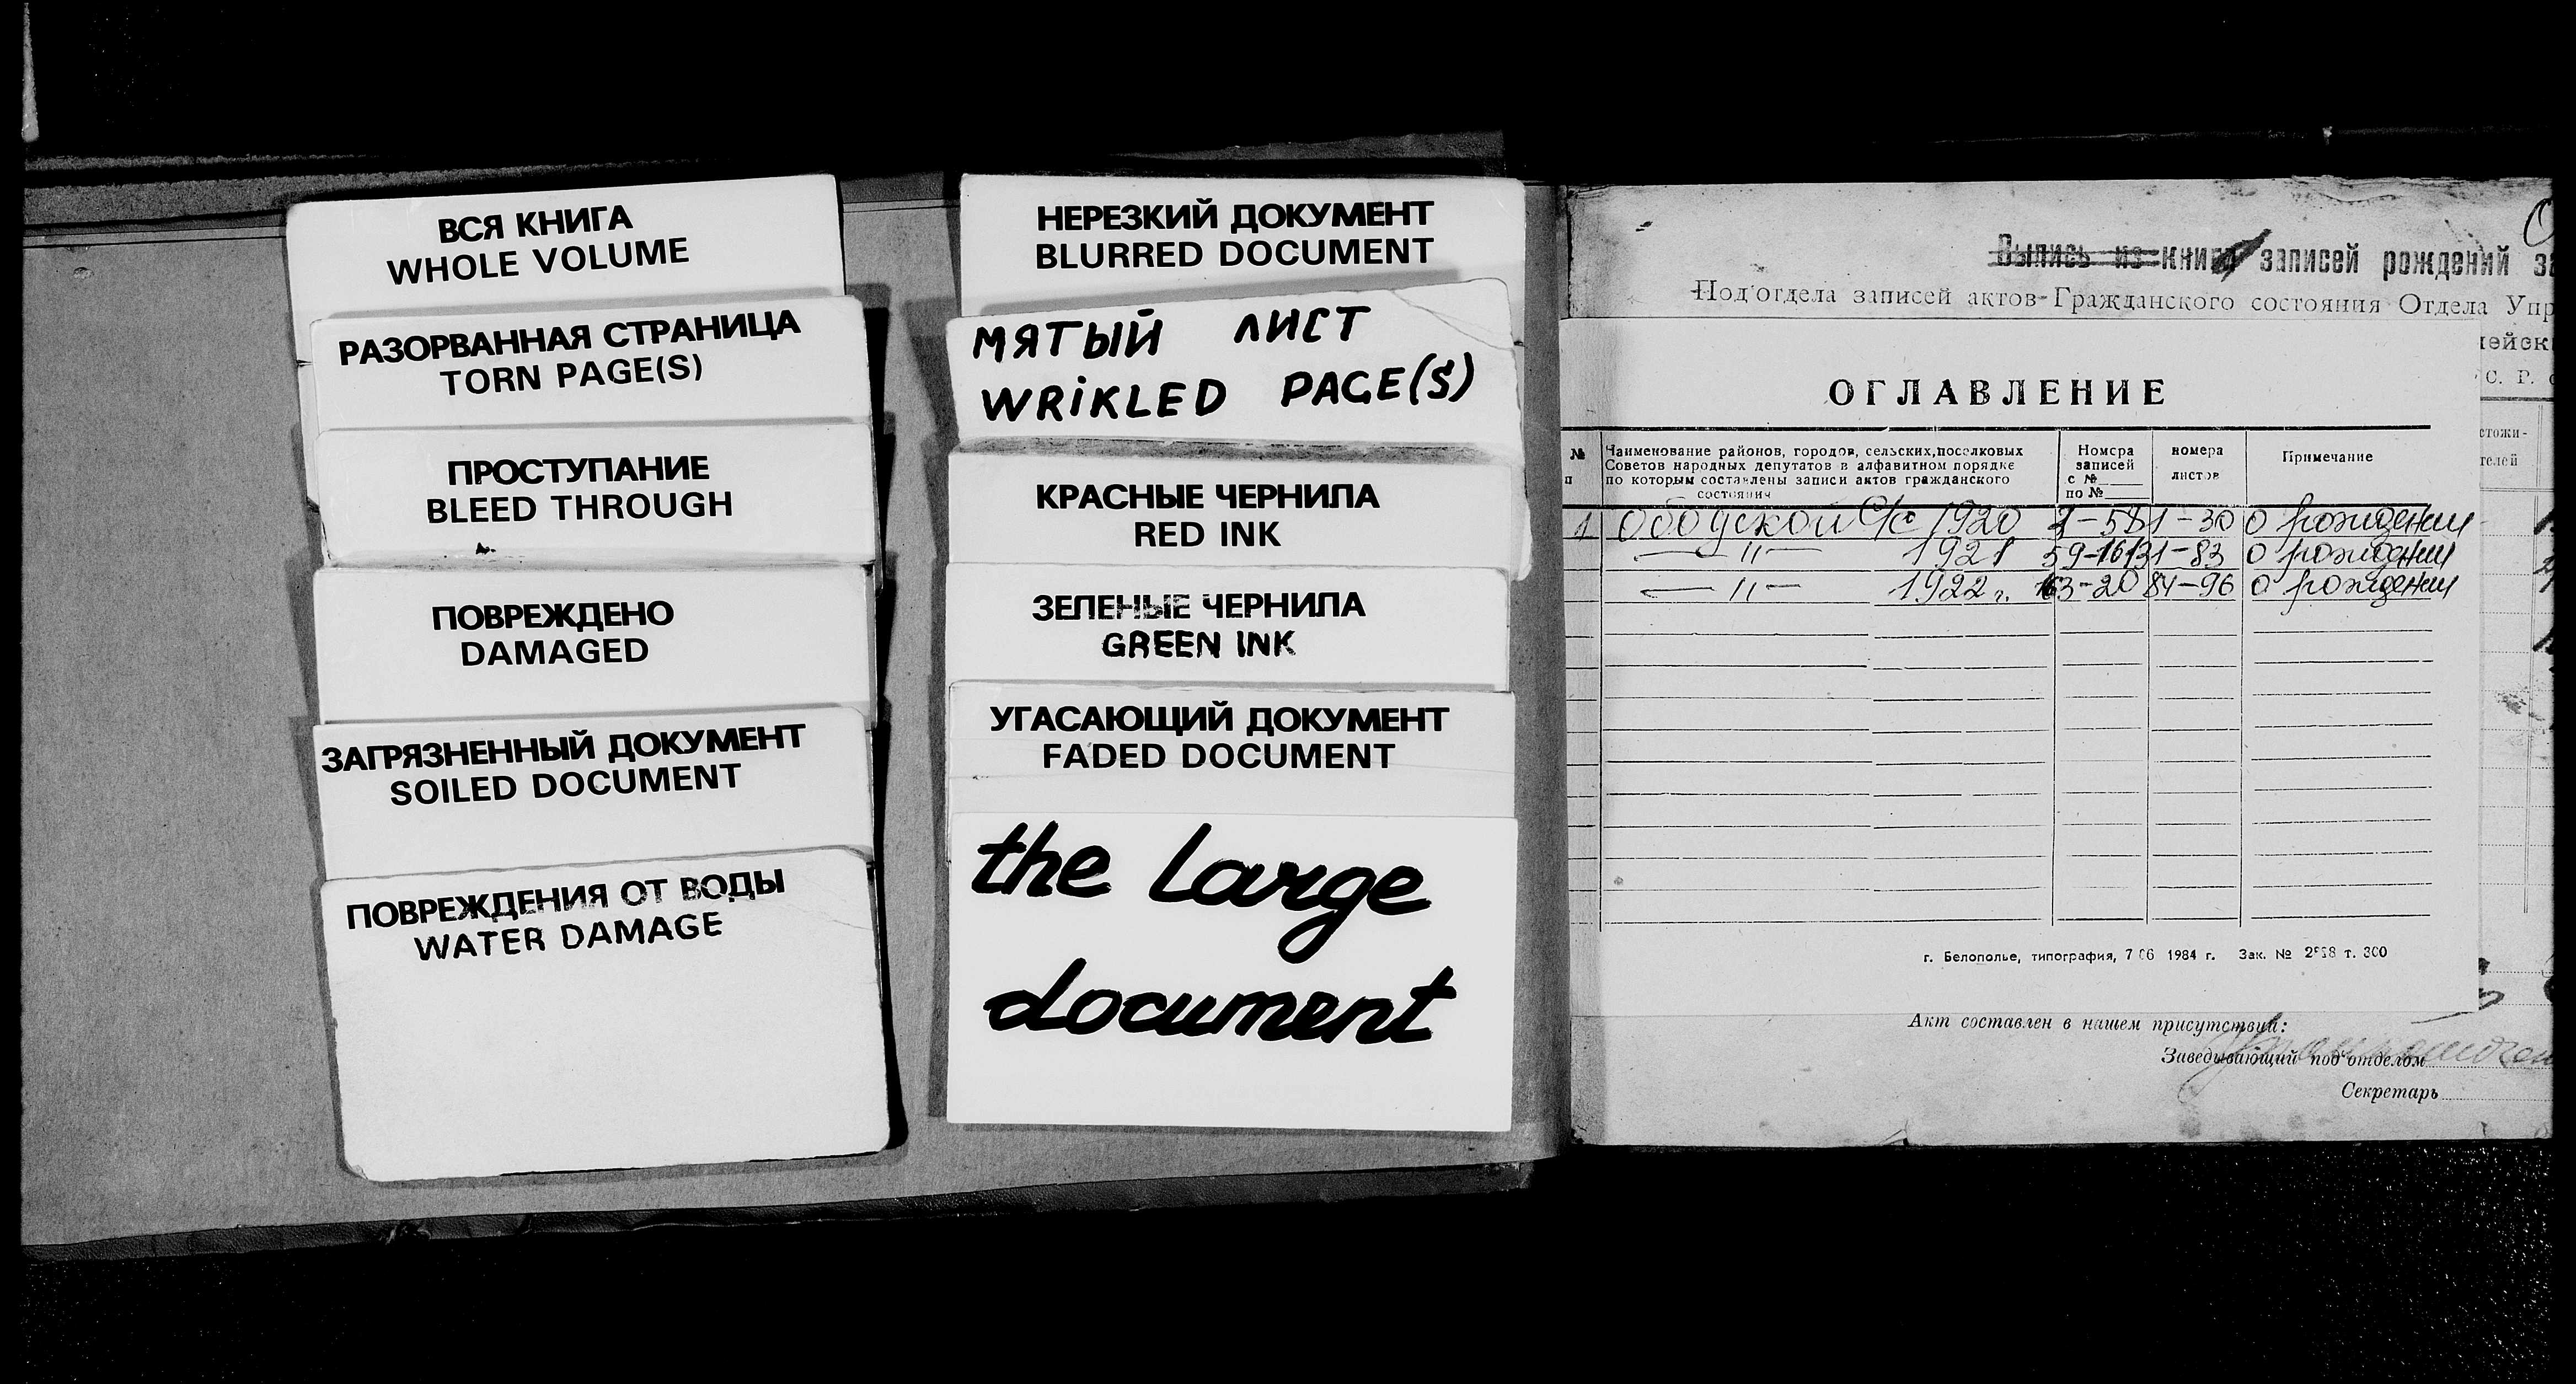 ВСЯ КНИГА
WHOLE VOLUME
РАЗОРВАННАЯ СТРАНИЦА
TORN PAGE(S)
ПРОСТУПАНИЕ
BLEED THROUGH
ПОВРЕЖДЕНО
DAMAGED
ЗАГРЯЗНЕННЫЙ ДОКУМЕНТ
SOILED DOCUMENT
ПОВРЕЖДЕНИЯ ОТ ВОДЫ
WATER DAMAGE
НЕРЕЗКИЙ ДОКУМЕНТ
BLURRED DOCUMENT
МЯТЫЙ ЛИСТ
WRIKLED PAGE(S)
КРАСНЫЕ ЧЕРНИЛА
RED INK
ЗЕЛЕНЫЕ ЧЕРНИЛА
GREEN INK
УГАСАЮЩИЙ ДОКУМЕНТ
FADED DOCUMENT
the large
document
Выпись из книги записей рождений
Под'отдела записей актов Гражданского состояния Отдела
С. Р.
ОГЛАВЛЕНИЕ
№ п
Наименование районов, городов, сельских, поселковых
Советов народных депутатов в алфавитном порядке
по которым составлены записи актов гражданского
состояния
Номера
записей
с №
по №
номера
листов
Примечание
1 Ободской с/с 1920 1-58 1-30 о рождении
— " — 1921 59-161 31-83 о рождении
— " — 1922 г. 84-96 о рождении
г. Белополье, типография, 1984 г. Зак. № т. 300
Акт составлен в нашем присутствии:
Заведывающий под'отделом
Секретарь